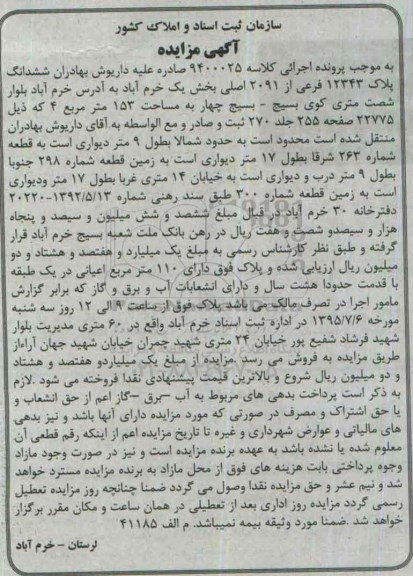 سازمان ثبت اسناد و املاک کشور
آگهی مزایده
به موجب پرونده اجرائی کلاسه ۹۴۰۰۰۲۵ صادره علیه داریوش بهادران ششدانگ
پلاک ۱۲۳۴۳ فرعی از ۲۰۹۱ اصلی بخش یک خرم آباد به آدرس خرم آباد بلوار
شصت متری کوی بسیج - بسیج چهار به مساحت ۱۵۳ متر مربع ۴ که ذیل
۲۲۷۷۵ صفحه ۲۵۵ جلد ۲۷۰ ثبت و صادر و مع الواسطه به آقای داریوش بهادران
منتقل شده است محدود است به حدود شمالا بطول ۹ متر دیواری است به قطعه
شماره ۲۶۳ شرقا بطول ۱۷ متر دیواری است به زمین قطعه شماره ۲۹۸ جنوبا
بطول ۹ متر درب و دیواری است به خیابان ۱۴ متری غربا بطول ۱۷ متر ودیواری
است به زمین قطعه شماره ۳۰۰ طبق سند رهنی شماره ۱۳۹۲/۵/۱۳-۲۰۲۲۰
دفترخانه ۳۰ خرم آباد در قبال مبلغ ششصد و شش میلیون و سیصد و پنجاه
هزار و سیصدو شصت و هفت ریال در رهن بانک ملت شعبه بسیج خرم آباد قرار
گرفته و طبق نظر کارشناس رسمی به مبلغ یک میلیارد و هفتصد و هشتاد و دو
میلیون ریال ارزیابی شده و پلاک فوق دارای ۱۱۰ متر مربع اعیانی در یک طبقه
با قدمت حدودا هشت سال و دارای انشعابات آب و برق و گاز که برابر گزارش
مامور اجرا در تصرف مالک می باشد پلاک فوق از ساعت ۹ الی ۱۲ روز سه شنبه
مورخه ۱۳۹۵/۷/۶ در اداره ثبت اسناد خرم آباد واقع در ۶۰ متری مدیریت بلوار
شهید فرشاد شفیع پور خیابان ۲۴ متری شهید چمران خیابان شهید جهان آراءاز
طریق مزایده به فروش می رسد .مزایده از مبلغ یک میلیاردو هفتصد و هشتاد
و دو میلیون ریال شروع و بالاترین قیمت پیشنهادی نقدا فروخته می شود .لازم
به ذکر است پرداخت بدهی های مربوط به آب –برق –گاز اعم از حق انشعاب و
یا حق اشتراک و مصرف در صورتی که مورد مزایده دارای آنها باشد و نیز بدهی
های مالیاتی و عوارض شهرداری و غیره تا تاریخ مزایده اعم از اینکه رقم قطعی آن
معلوم شده یا نشده باشد به عهده برنده مزایده است و نیز در صورت وجود مازاد
وجوه پرداختی بابت هزینه های فوق از محل مازاد به برنده مزایده مسترد خواهد
شد و نیم عشر و حق مزایده نقدا وصول می گردد ضمنا چنانچه روز مزایده تعطیل
رسمی گردد مزایده روز اداری بعد از تعطیلی در همان ساعت و مکان مقرر برگزار
خواهد شد .ضمنا مورد وثیقه بیمه نمیباشد. م الف ۴۱۱۸۵
لرستان – خرم آباد